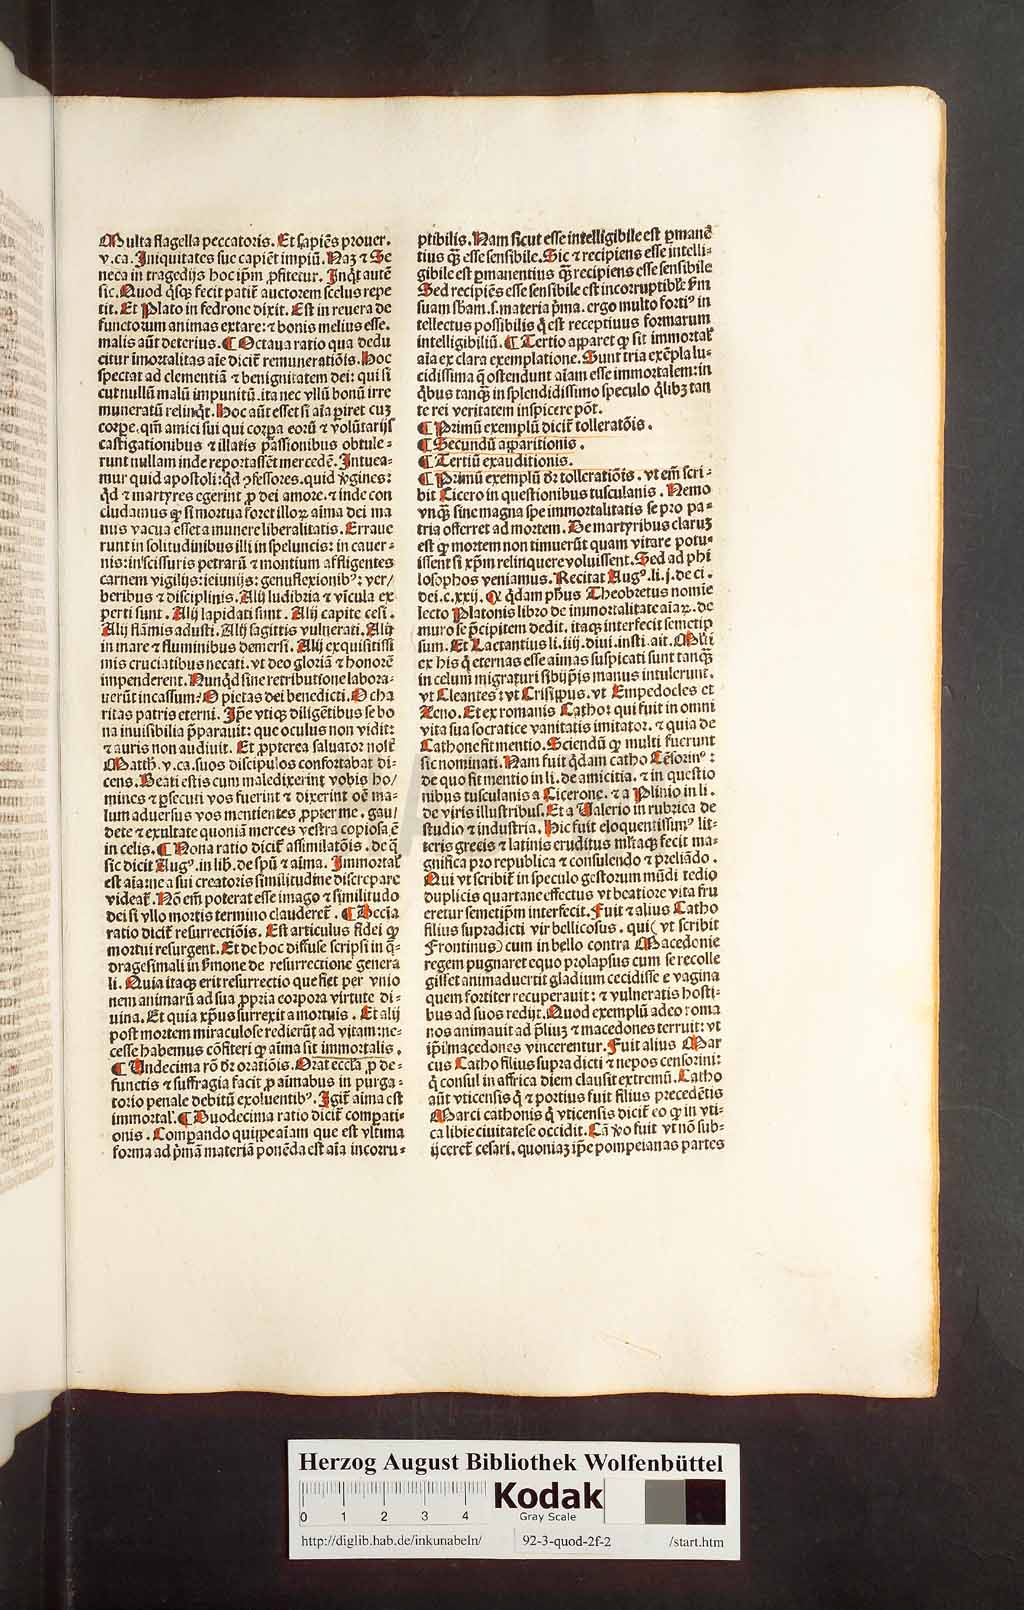 Multa flagella peccatoris. Et sapiẽs prouer.
v.ca. Iniquitates sue capiẽt impiũ. Naʒ ⁊ Se
neca in tragedijs hoc ip̃m ꝓfitetur. Inq̃t autẽ
sic. Quod q̃sq̃ fecit patit̃ auctorem scelus repe
tit. Et Plato in fedrone dixit. Est in reuera de
functorum animas extare: ⁊ bonis melius esse.
malis aũt deterius. ¶ Octaua ratio qua dedu
citur im̃ortalitas aĩe dicit̃ remuneratiõis. Hoc
spectat ad clementiã ⁊ benignitatem dei: qui si
cut nullũ malũ impunitũ. ita nec vllũ bonũ irre
muneratũ relinq̃t. Hoc aũt esset si aĩa ꝑiret cuʒ
corꝑe. qm̃ amici sui qui corꝑa eorũ ⁊ volũtarijs
castigationibus ⁊ illatis ꝑassionibus obtule-
runt nullam inde reportassẽt mercedẽ. Intuea-
mur quid apostoli: q̃d ↄfessores. quid v̾gines:
q̃d ⁊ martyres egerint ꝓ dei amore. ⁊ inde con
cludamus ꝙ si mortua foret illoꝝ aĩma dei ma
nus vacua esset a munere liberalitatis. Erraue
runt in solitudinibus illi in speluncis: in cauer-
nis: in scissuris petrarũ ⁊ montium affligentes
carnem vigilijs: ieiunijs: genuflexionibꝰ: ver/
beribus ⁊ disciplinis. Alij ludibria ⁊ vĩcula ex
perti sunt. Alij lapidati sunt. Alij capite cesi.
Alij flãmis adusti. Alij sagittis vulnerati. Alij
in mare ⁊ fluminibus demersi. Alij exquisitissi
mis cruciatibus necati. vt deo gloriã ⁊ honorẽ
impenderent. Nunq̃d sine retributione labora-
uerũt incassum? O pietas dei benedicti. O cha
ritas patris eterni. Ip̃e vtiqꝫ diligẽtibus se bo
na inuisibilia p̃parauit: que oculus non vidit:
⁊ auris non audiuit. Et ꝓpterea saluator nost̃
Matth. v.ca. suos discipulos confortabat di-
cens. Beati estis cum maledixerint vobis ho/
mines ⁊ ꝑsecuti vos fuerint ⁊ dixerint oẽ ma-
lum aduersus vos mentientes ꝓpter me. gau/
dete ⁊ exultate quoniã merces vestra copiosa ẽ
in celis. ¶ Nona ratio dicit̃ assimilatõis. de q̃
sic dicit Augꝰ. in lib. de spũ ⁊ aĩma. Immortal̃
est aĩa: ne a sui creatoris similitudine discrepare
videat̃. Nõ em̃ poterat esse imago ⁊ similitudo
dei si vllo mortis termino clauderet̃. ¶ Decia
ratio dicit̃ resurrectiõis. Est articulus fidei ꝙ
mortui resurgent. Et de hoc diffuse scripsi in q̃-
dragesimali in s̃mone de resurrectione genera
li. Quia itaqꝫ erit resurrectio que fiet per vnio
nem animarũ ad sua ꝓpria corpora virtute di-
uina. Et quia xp̃us surrexit a mortuis. Et alij
post mortem miraculose redierũt ad vitam: ne-
cesse habemus cõfiteri ꝙ aĩma sit immortalis.
¶ Undecima rõ dr̃ oratiõis. Orat eccl̃a ꝓ de-
functis ⁊ suffragia facit ꝓ aĩmabus in purga-
torio penale debitũ exoluentibꝰ. Igit̃ aĩma est
immortal̃. ¶ Duodecima ratio dicit̃ compati-
onis. Comꝑando quippe aĩam que est vltima
forma ad p̃mã materiã ponẽda est aĩa incorru-
ptibilis. Nam sicut esse intelligibile est ꝑmanẽ
tius q̃ʒ esse sensibile. Sic ⁊ recipiens esse intelli-
gibile est ꝑmanentius q̃ʒ recipiens esse sensibile
Sed recipiẽs esse sensibile est incorruptibile s̃m
suam sb̃am. s. materia p̃ma. ergo multo fortiꝰ in
tellectus possibilis q̃ est receptiuus formarum
intelligibiliũ. ¶ Tertio apparet ꝙ sit immortal̃
aĩa ex clara exemplatione. Sunt tria exẽpla lu-
cidissima q̃ ostendunt aĩam esse immortalem: in
q̃bus tanq̃ʒ in splendidissimo speculo q̃libʒ tan
te rei veritatem inspicere põt.
¶ Primũ exemplũ dicit̃ tolleratõis.
¶ Secundũ apparitionis.
¶ Tertiũ exauditionis.
¶ Primũ exemplũ dr̃ tolleratiõis. vt em̃ scri-
bit Cicero in questionibus tusculanis. Nemo
vnq̃ʒ sine magna spe immortalitatis se pro pa-
tria offerret ad mortem. De martyribus claruʒ
est ꝙ mortem non timuerũt quam vitare potu-
issent si xp̃m relinquere voluissent. Sed ad phi
losophos veniamus. Recitat Augꝰ. li. j. de ci.
dei. c. xxij. Q q̃dam ph̃us Theobretus nomĩe
lecto Platonis libro de immortalitate aĩaꝝ. de
muro se p̃cipitem dedit. itaqꝫ interfecit semetip
sum. Et Lactantius li. iij. diui. insti. ait. Ml̃ti
ex his q̃ eternas esse aĩmas suspicati sunt tanq̃ʒ
in celum migraturi sibijp̃is manus intulerunt.
vt Cleantes: vt Crisippus. vt Empedocles et
Zeno. Et ex romanis Catho: qui fuit in omni
vita sua socratice vanitatis imitator. ⁊ quia de
Cathone fit mentio. Sciendũ ꝙ multi fuerunt
sic nominati. Nam fuit q̃dam catho Cẽsorinꝰ:
de quo fit mentio in li. de amicitia. ⁊ in questio
nibus tusculanis a Cicerone. ⁊ a Plinio in li.
de viris illustribus. Et a Valerio in rubrica de
studio ⁊ industria. Hic fuit eloquentissimꝰ lit-
teris grecis ⁊ latinis eruditus ml̃taqꝫ fecit ma-
gnifica pro republica ⁊ consulendo ⁊ preliãdo.
Qui vt scribit̃ in speculo gestorum mũdi tedio
duplicis quartane effectus vt beatiore vita fru
eretur semetip̃m interfecit. Fuit ⁊ alius Catho
filius supradicti vir bellicosus. qui ( vt scribit
Frontinus) cum in bello contra Macedonie
regem pugnaret equo prolapsus cum se recolle
gisset animaduertit gladium cecidisse e vagina
quem fortiter recuperauit: ⁊ vulneratis hosti-
bus ad suos redijt. Quod exemplũ adeo roma
nos animauit ad p̃liuʒ ⁊ macedones terruit: vt
ip̃i macedones vincerentur. Fuit alius Mar
cus Catho filius supra dicti ⁊ nepos censorini:
q̃ consul in affrica diem clausit extremũ. Catho
aũt vticensis q̃ ⁊ portius fuit filius precedẽtis
Marci cathonis q̃ vticensis dicit̃ eo ꝙ in vti-
ca libie ciuitate se occidit. Cã v̾o fuit vt nõ sub-
ijceret̃ cesari. quoniaʒ ip̃e pompeianas partes
Herzog August Bibliothek Wolfenbüttel
0 1 2 3 4
Kodak
Gray Scale
http://diglib.hab.de/inkunabeln/ 92-3-quod-2f-2 /start.htm